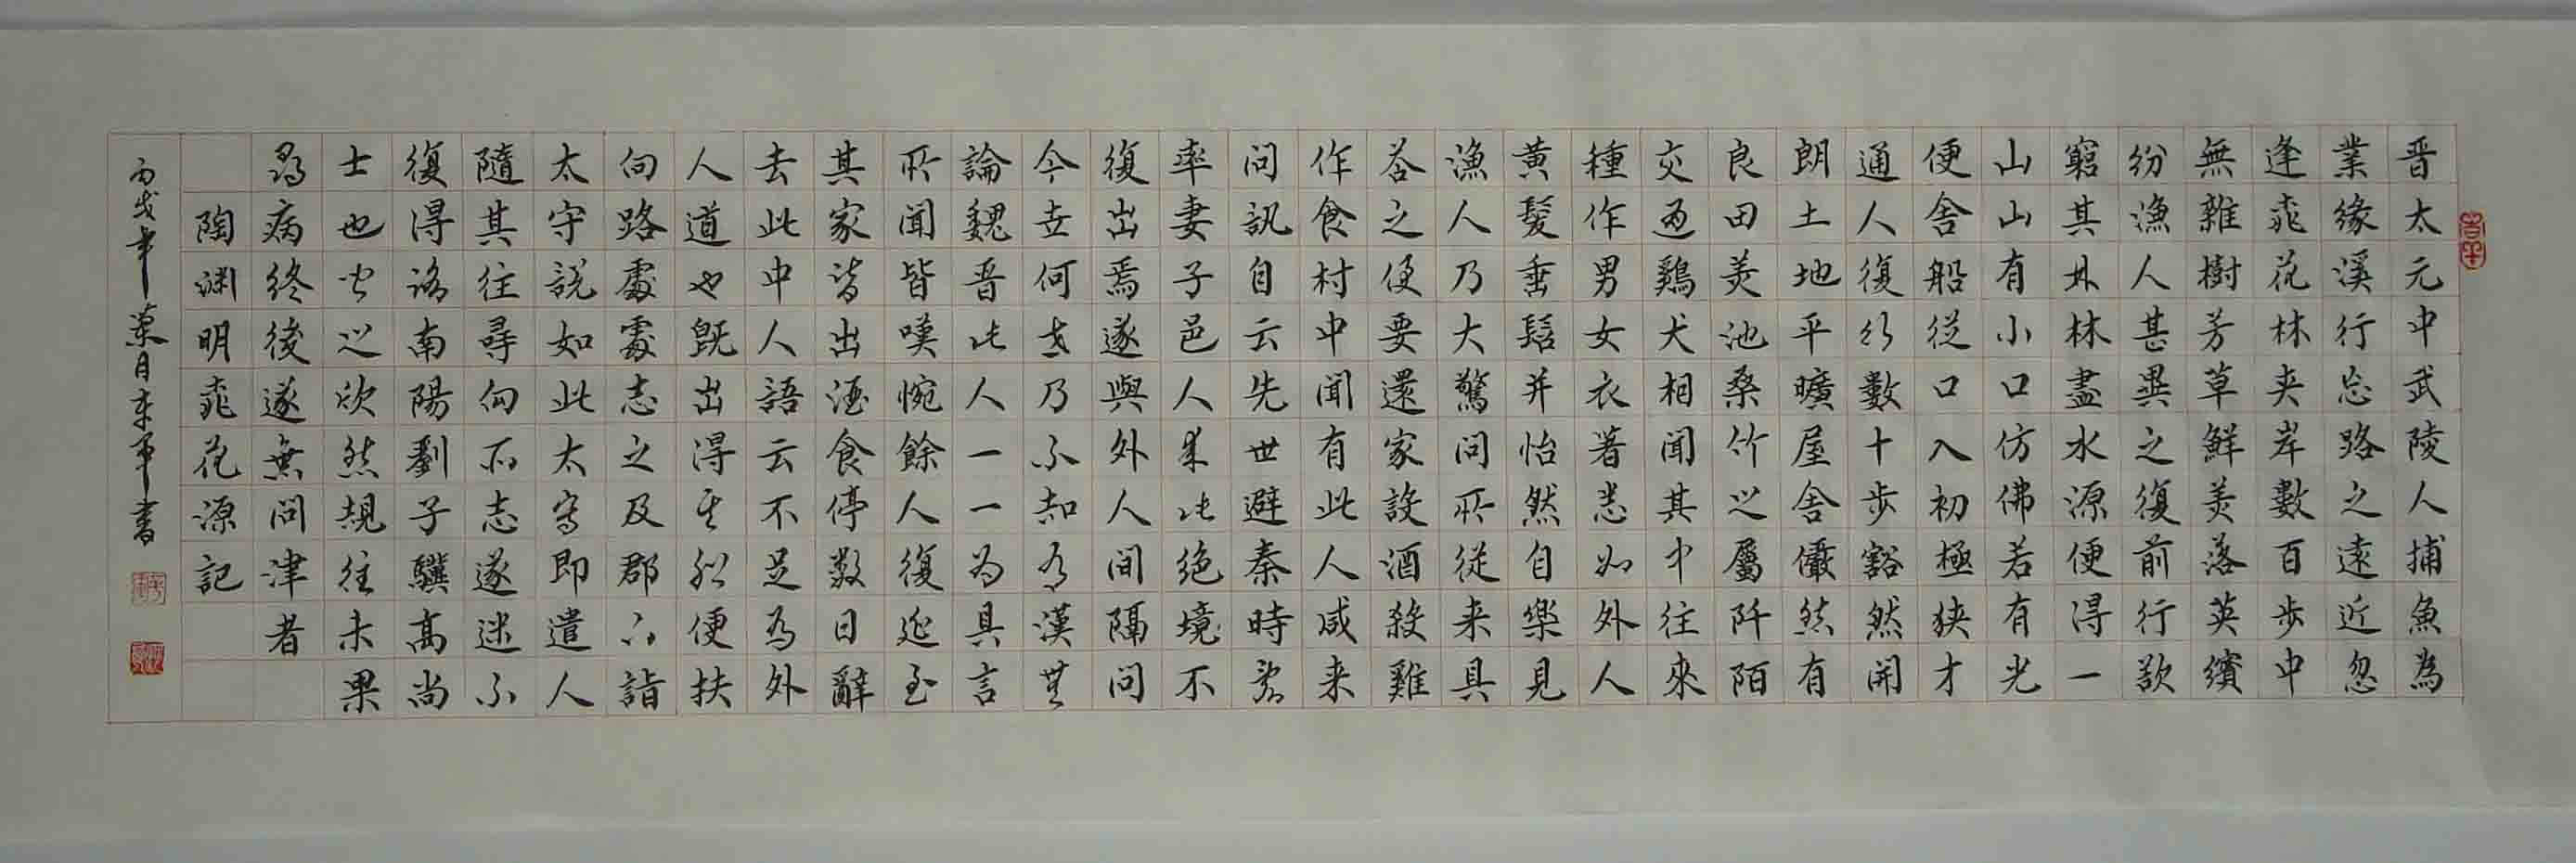 晋太元中武陵人捕魚為
業緣溪行忘路之遠近忽
逢桃花林夹岸數百步中
無雜樹芳草鮮美落英繽
纷漁人甚異之復前行欲
窮其林林盡水源便得一
山山有小口仿佛若有光
便舍船從口入初極狹才
通人復行數十步豁然開
朗土地平曠屋舍儼然有
良田美池桑竹之屬阡陌
交通鷄犬相聞其中往來
種作男女衣著悉如外人
黄髮垂髫并怡然自樂見
漁人乃大驚問所從来具
答之便要還家設酒殺雞
作食村中聞有此人咸来
問訊自云先世避秦時亂
率妻子邑人来此絶境不
復出焉遂與外人間隔問
今世何世乃不知有漢無
論魏晋此人一一為具言
所聞皆嘆惋餘人復延至
其家皆出酒食停數日辭
去此中人語云不足為外
人道也既出得其船便扶
向路處處志之及郡下詣
太守説如此太守即遣人
隨其往尋向所志遂迷不
復得路南陽劉子驥高尚
士也聞之欣然規往未果
尋病終後遂無問津者
陶淵明桃花源記
丙戌年菊月書